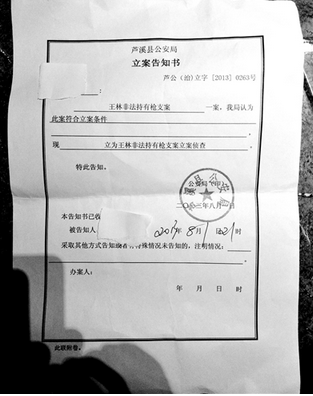 芦溪县公安局
立案告知书
芦公（治）立字［2013］0263号
：
王林非法持有枪支案 一案，我局认为
此案符合立案条件
现 立为王林非法持有枪支案立案侦查 。
特此告知。
公安局（印）
二〇一三年八月一日
本告知书已收
被告知人 2013年8月1日21时
采取其他方式告知或者有特殊情况未告知的，注明情况：
办案人：
年 月 日 时
此联附卷。